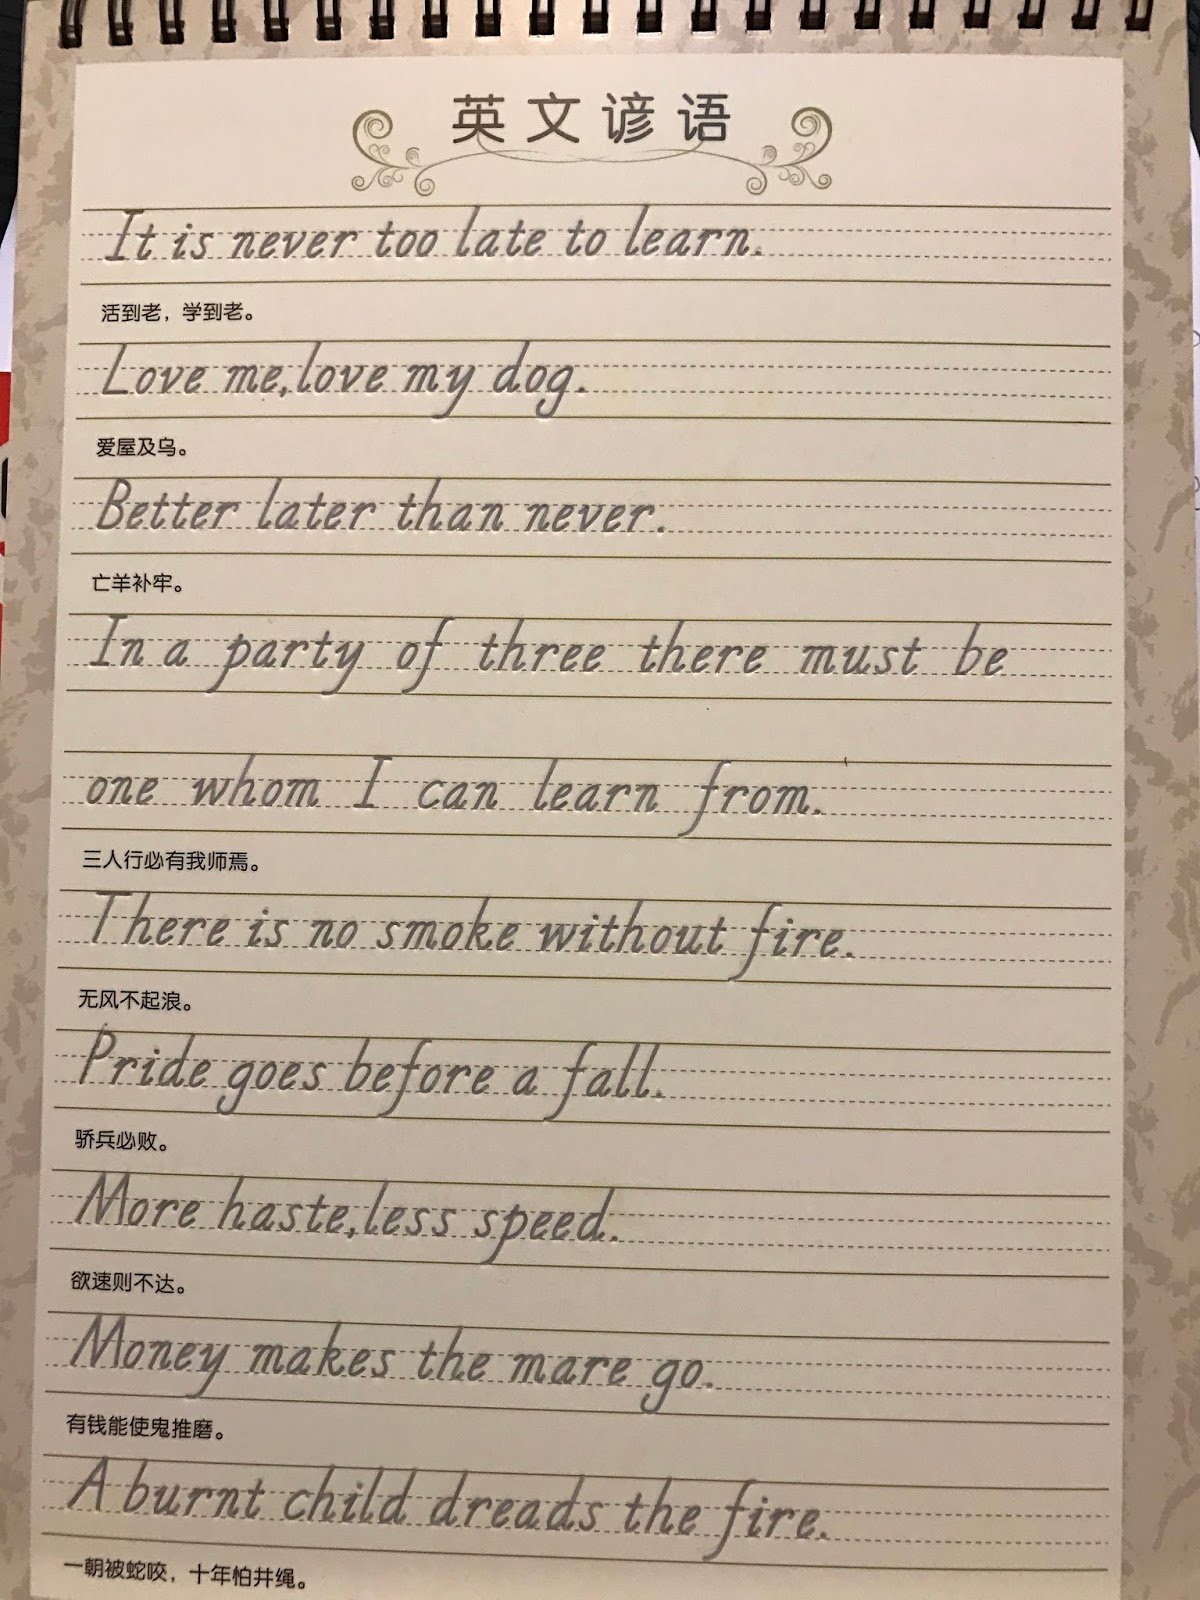 英文谚语
It is never too late to learn.
活到老，学到老。
Love me,love my dog.
爱屋及乌。
Better later than never.
亡羊补牢。
In a party of three there must be
one whom I can learn from.
三人行必有我师焉。
There is no smoke without fire.
无风不起浪。
Pride goes before a fall.
骄兵必败。
More haste,less speed.
欲速则不达。
Money makes the mare go.
有钱能使鬼推磨。
A burnt child dreads the fire.
一朝被蛇咬，十年怕井绳。